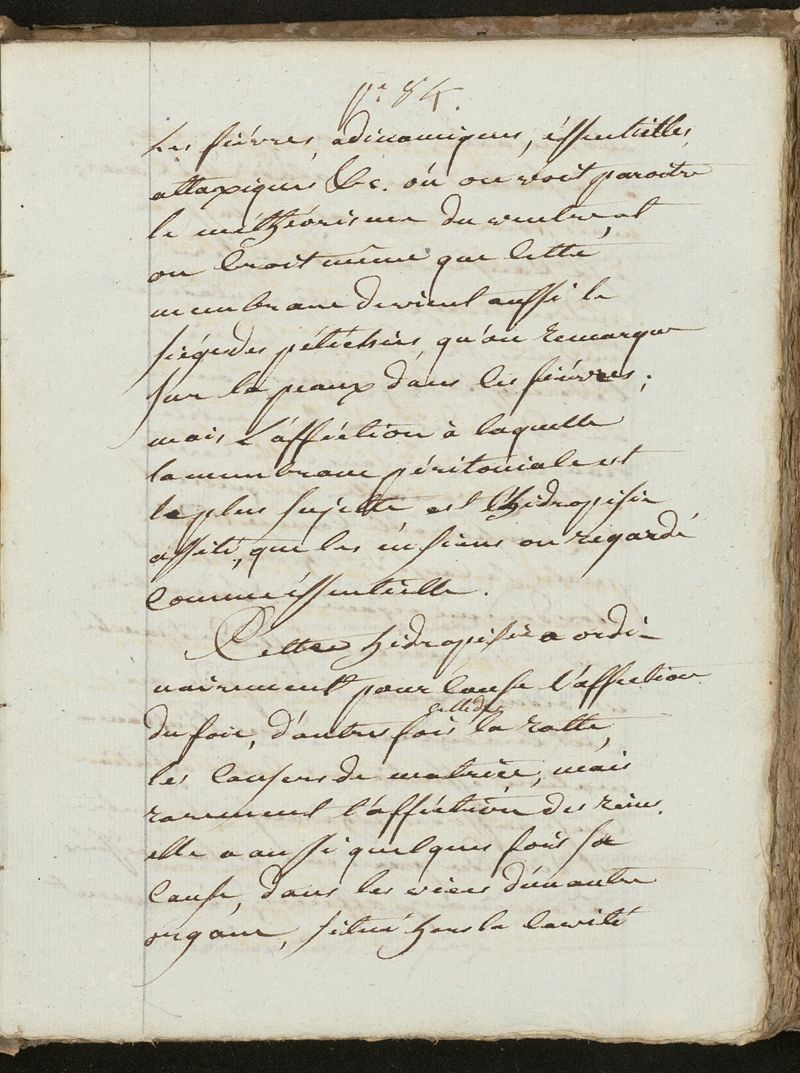 Pe 84.
Les fiévres, adinamiques, éssentielles,
attaxiques &c. ou on voit paroitre
le méthéorisme du ventre, et
on croit même que cette
membrane devient aussi le
siége des pétéchies qu'on remarque
sur la peaux dans les fiévres ;
mais L'afféction à laquelle
la membrane péritoniale est
le plus sujette est l'hidropisie
assite, que les ensiens on regardé
comme éssentielle.
Cette hidropisie a ordi-
nairement pour cause l'affection
du foie, d'autres fois celle de la ratte,
les cansers de matrice, mais
rarement l'afféction des reins.
elle a aussi quelques fois sa
cause, dans les vices d'un autre
organe, situé hors la cavité